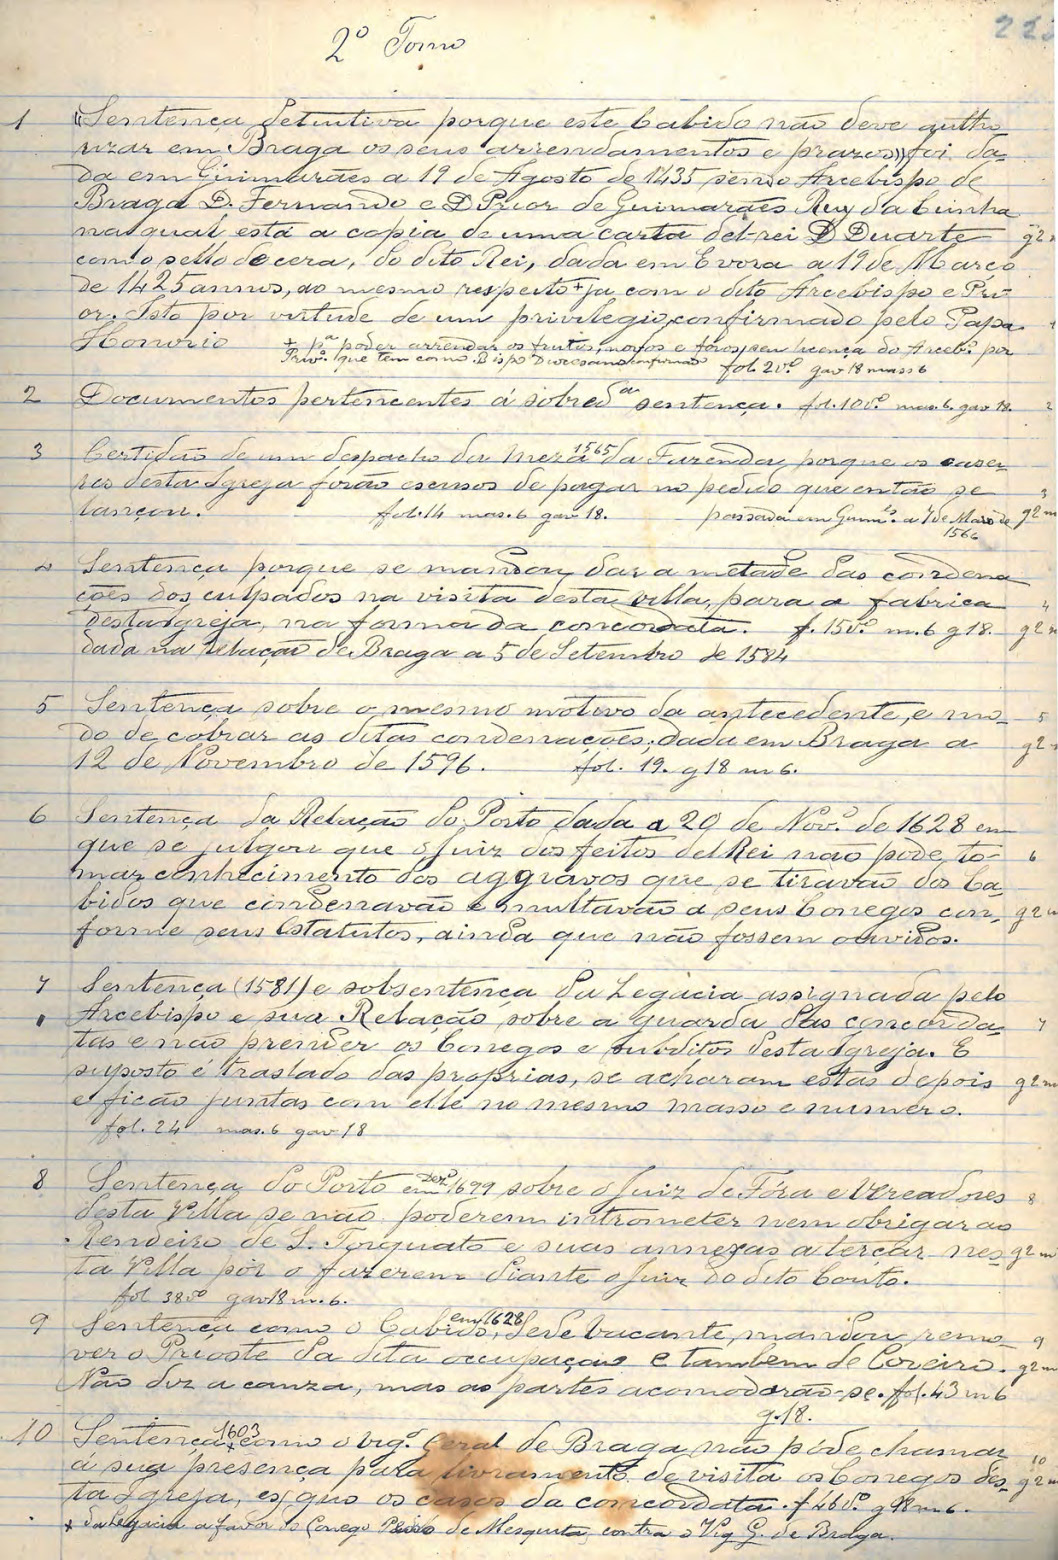 223
2º Tomo
1 «Sentença defenitiva porque este Cabido não deve autho
rizar em Braga os seus arrendamentos e prazos» foi da-
da em Guimarães a 19 de Agosto de 1435 sendo Arcebispo de
Braga D. Fernando e D Prior de Guimarães Ruy da Cunha
na qual está a copia de uma carta del-rei D Duarte g2
com o sello de cera, do dito Rei, dada em Evora a 19 de Março
de 1425 annos, ao mesmo respeito + ja com o dito Arcebispo e Pri-
or. Isto por virtude de um privilegio, confirmado pelo Papa 1
Honorio + pª poder arrendar os frutos, novos e foros, sem licença do Arcebº por
Privº que tem como Bispo Diocesano confirmado fol. 2vº gav 18 mass 6
2 Documentos pertencentes á sobredª sentença. fol. 10vº mas. 6. gav 18. 2
3 Certidão de um despacho da Meza 1565 da Fazenda, porque os casei-
ros desta Igreja forão escusos de pagar no pedido que então se 3
lançou. fol. 14 mas. 6 gav 18. passada em Guimes. a 7 de Maio de g2 m
1566
4 Sentença porque se mandou dar a metade das condena
ções dos culpados na visita desta villa, para a fabrica 4
desta Igreja, na forma da concordata. f. 15vº m. 6 g 18. g2
dada na relação de Braga a 5 de Setembro de 1584
5 Sentença sobre o mesmo motivo da antecedente, e mo- 5
do de cobrar as ditas condenações; dada em Braga a g2
12 de Novembro de 1596. fol. 19. g18 m 6.
6 Sentença da Relação do Porto dada a 20 de Novº de 1628 em
que se julgou que o Juiz dos feitos del Rei não póde to- 6
mar conhecimento dos aggravos que se tiravão dos Ca-
bidos que condenavão e multavão a seus Conegos con- g2 m
forme seus Estatutos, ainda que não fossem ouvidos.
7 Sentença (1581) e sobsentença da Legacia assignada pelo
Arcebispo e sua Relação sobre a guarda das concorda- 7
tas e não prender os Conegos e subditos desta Igreja. E
suposto é traslado das proprias, se acharam estas depois g2 m
e ficão juntas com elle no mesmo masso e numero.
fol. 24 mas. 6 gav 18
8 Sentença do Porto em Dezº 1699 sobre o Juiz de Fóra e Vereadores 8
desta Villa se não poderem intrometer nem obrigar ao
Rendeiro de S. Torquato e suas annexas a terçar nes- g2 m
ta Villa por o fazerem diante o Juiz do dito Couto.
fol 38vº gav 18 m. 6.
9 Sentença como o Cabido, em 1628, Sede Vacante, mandou remo- 9
ver o Prioste da dita occupação e tambem de Coreiro. g2 m
Não diz a cauza, mas as partes acomodarão-se. fol. 43 m 6
g. 18.
10 Sentença 1603 + como o Vigº Geral de Braga não póde chamar
á sua presença para livramento de visita os Conegos des- 10 g2 m
ta Igreja, excepto os casos da concordata. f 46vº. g 18 m 6.
+ da Legacia a favor do Conego Pedro de Mesquita, contra o Vig G. de Braga.